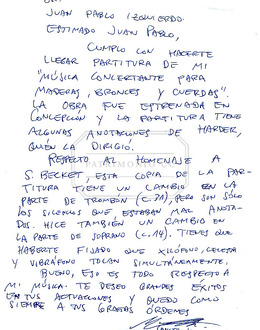 JUAN PABLO IZQUIERDO.
ESTIMADO JUAN PABLO,
CUMPLO CON HACERTE
LLEGAR PARTITURA DE MI
"MÚSICA CONCERTANTE PARA
MADERAS, BRONCES Y CUERDAS".
LA OBRA FUE ESTRENADA EN
CONCEPCIÓN Y LA PARTITURA TIENE
ALGUNAS ANOTACIONES DE HARDER,
QUIEN LA DIRIGIÓ.
RESPECTO AL HOMENAJE A
S. BECKET, ESTA COPIA DE LA PAR-
TITURA TIENE UN CAMBIO EN LA
PARTE DE TROMBÓN (C.7A), PERO SON SÓLO
LOS SILENCIOS QUE ESTABAN MAL ANOTA-
DOS. HICE TAMBIÉN UN CAMBIO EN
LA PARTE DE SOPRANO (C.A4). TIENES QUE
HABERTE FIJADO QUE XILÓFONO, CELESTA
Y VIBRÁFONO TOCAN SIMULTÁNEAMENTE.
BUENO, ESO ES TODO RESPECTO A
MI MÚSICA. TE DESEO GRANDES ÉXITOS
EN TUS ACTUACIONES Y QUEDO COMO
SIEMPRE A TUS GRATAS ÓRDENES